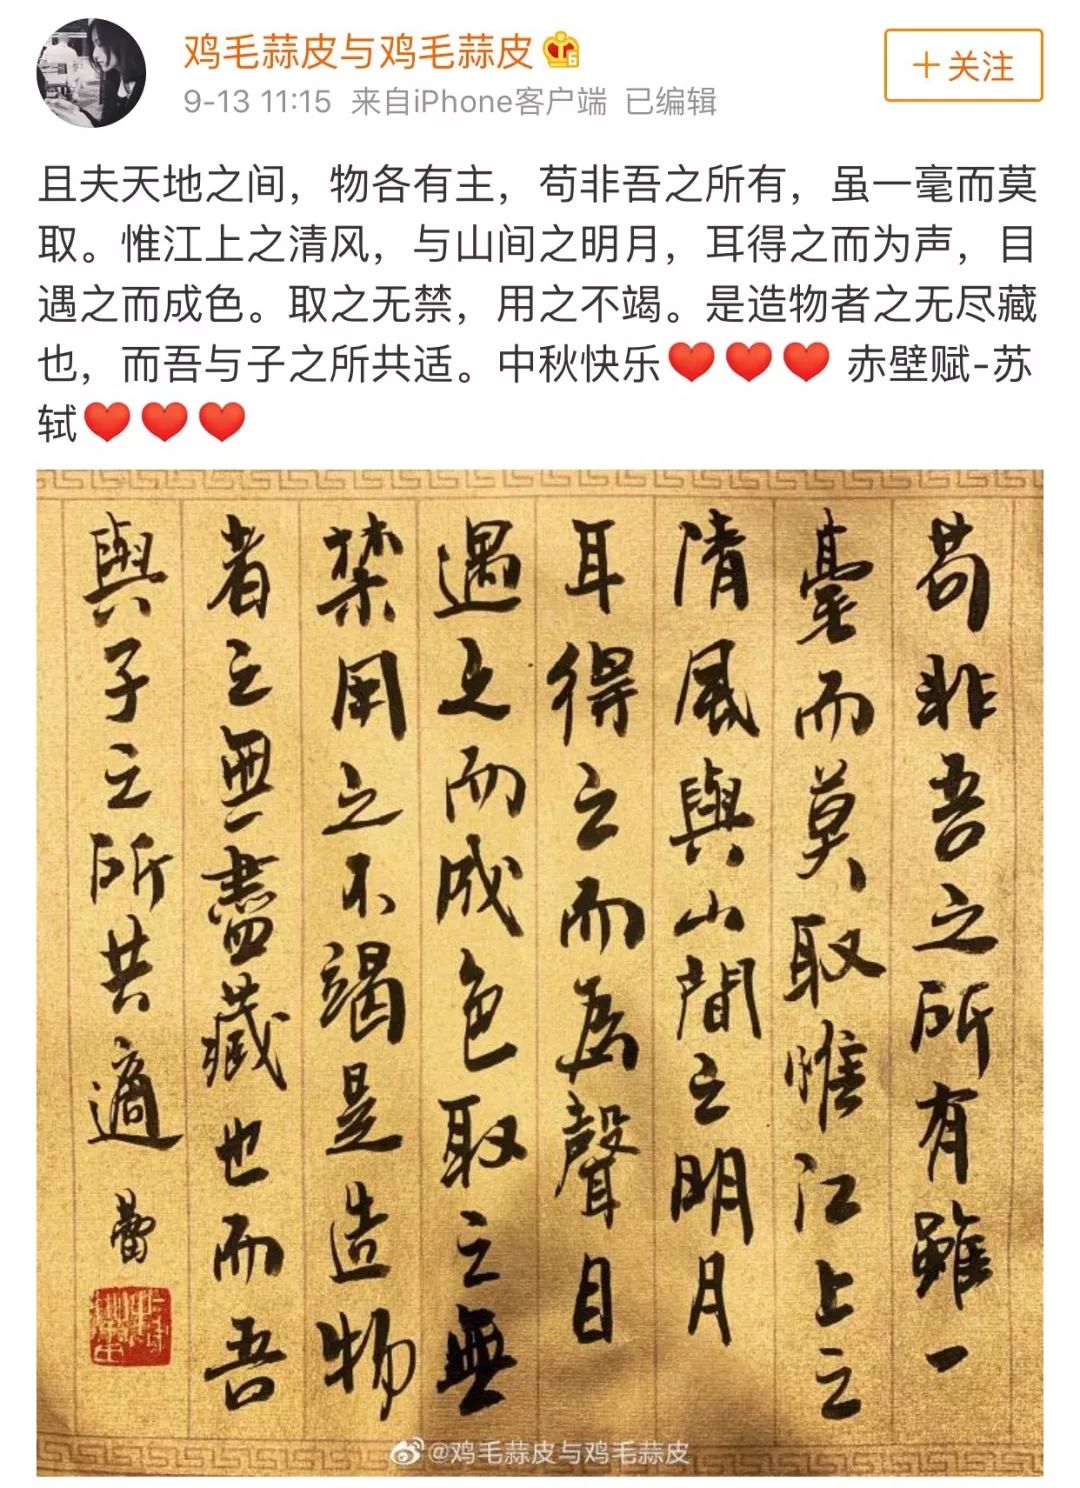 鸡毛蒜皮与鸡毛蒜皮
9-13 11:15 来自iPhone客户端 已编辑
+关注
且夫天地之间，物各有主，苟非吾之所有，虽一毫而莫
取。惟江上之清风，与山间之明月，耳得之而为声，目
遇之而成色。取之无禁，用之不竭。是造物者之无尽藏
也，而吾与子之所共适。中秋快乐❤️❤️❤️ 赤壁赋-苏
轼❤️❤️❤️
苟非吾之所有雖一
毫而莫取惟江上之
清風與山間之明月
耳得之而為聲目
遇之而成色取之無
禁用之不竭是造物
者之無盡藏也而吾
與子之所共適
蕾
@鸡毛蒜皮与鸡毛蒜皮